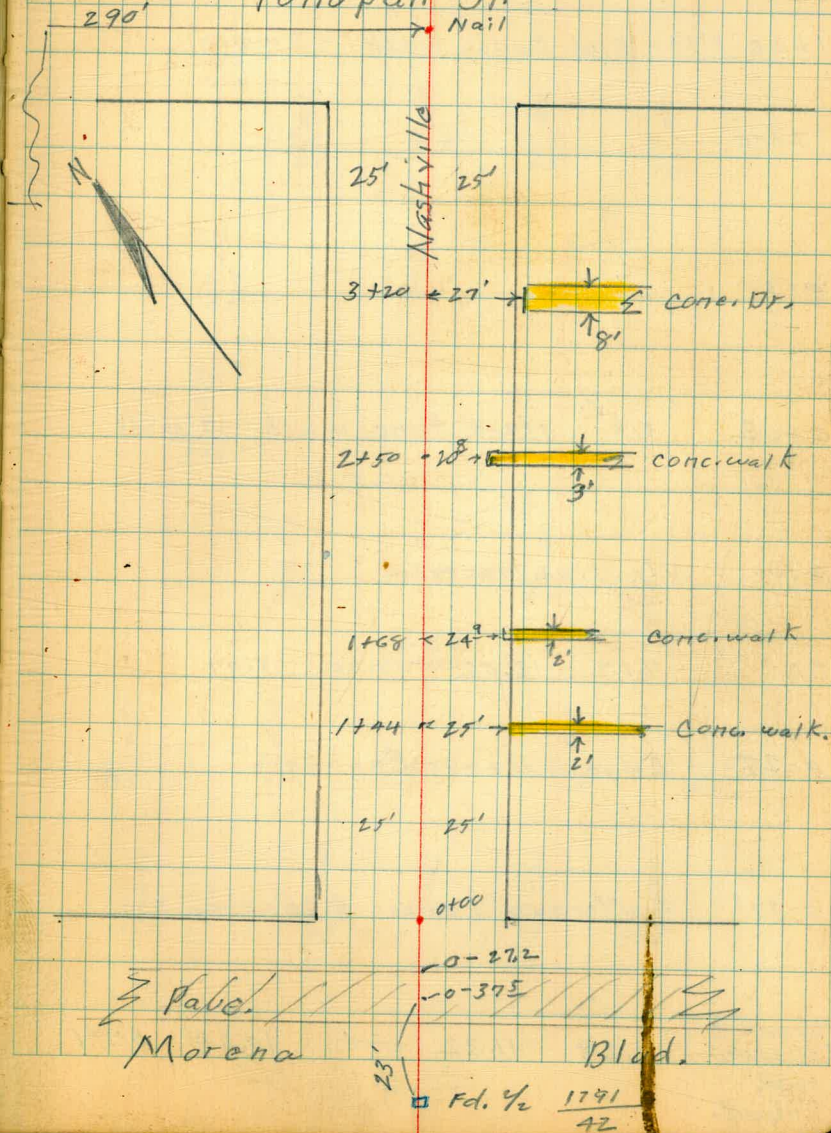 290' Nail
Nashville
N
25' 25'
3+20 27' Conc. Dr.
8'
2+50 20⁸ conc. walk
3'
1+68 24⁹ conc. walk
2'
1+44 25' Conc. walk.
2'
25' 25'
0+00
0-27.2
0-37⁵
Pave.
Morena Blvd.
23'
Fd. 1791
42